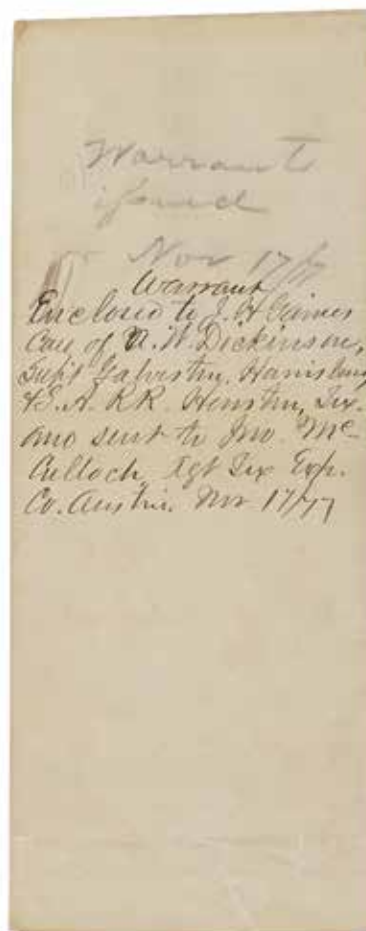 Warrant
issued
Nov 17/77
Warrant
Enclosed to J. H. Gaines
Care of A. W. Dickinson,
Supt Galveston, Harrisburg
& S. A. RR. Houston, Tex.
and sent to Jno. Mc-
Culloch, Agt Tex Exp.
Co. Austin. Nov 17/77